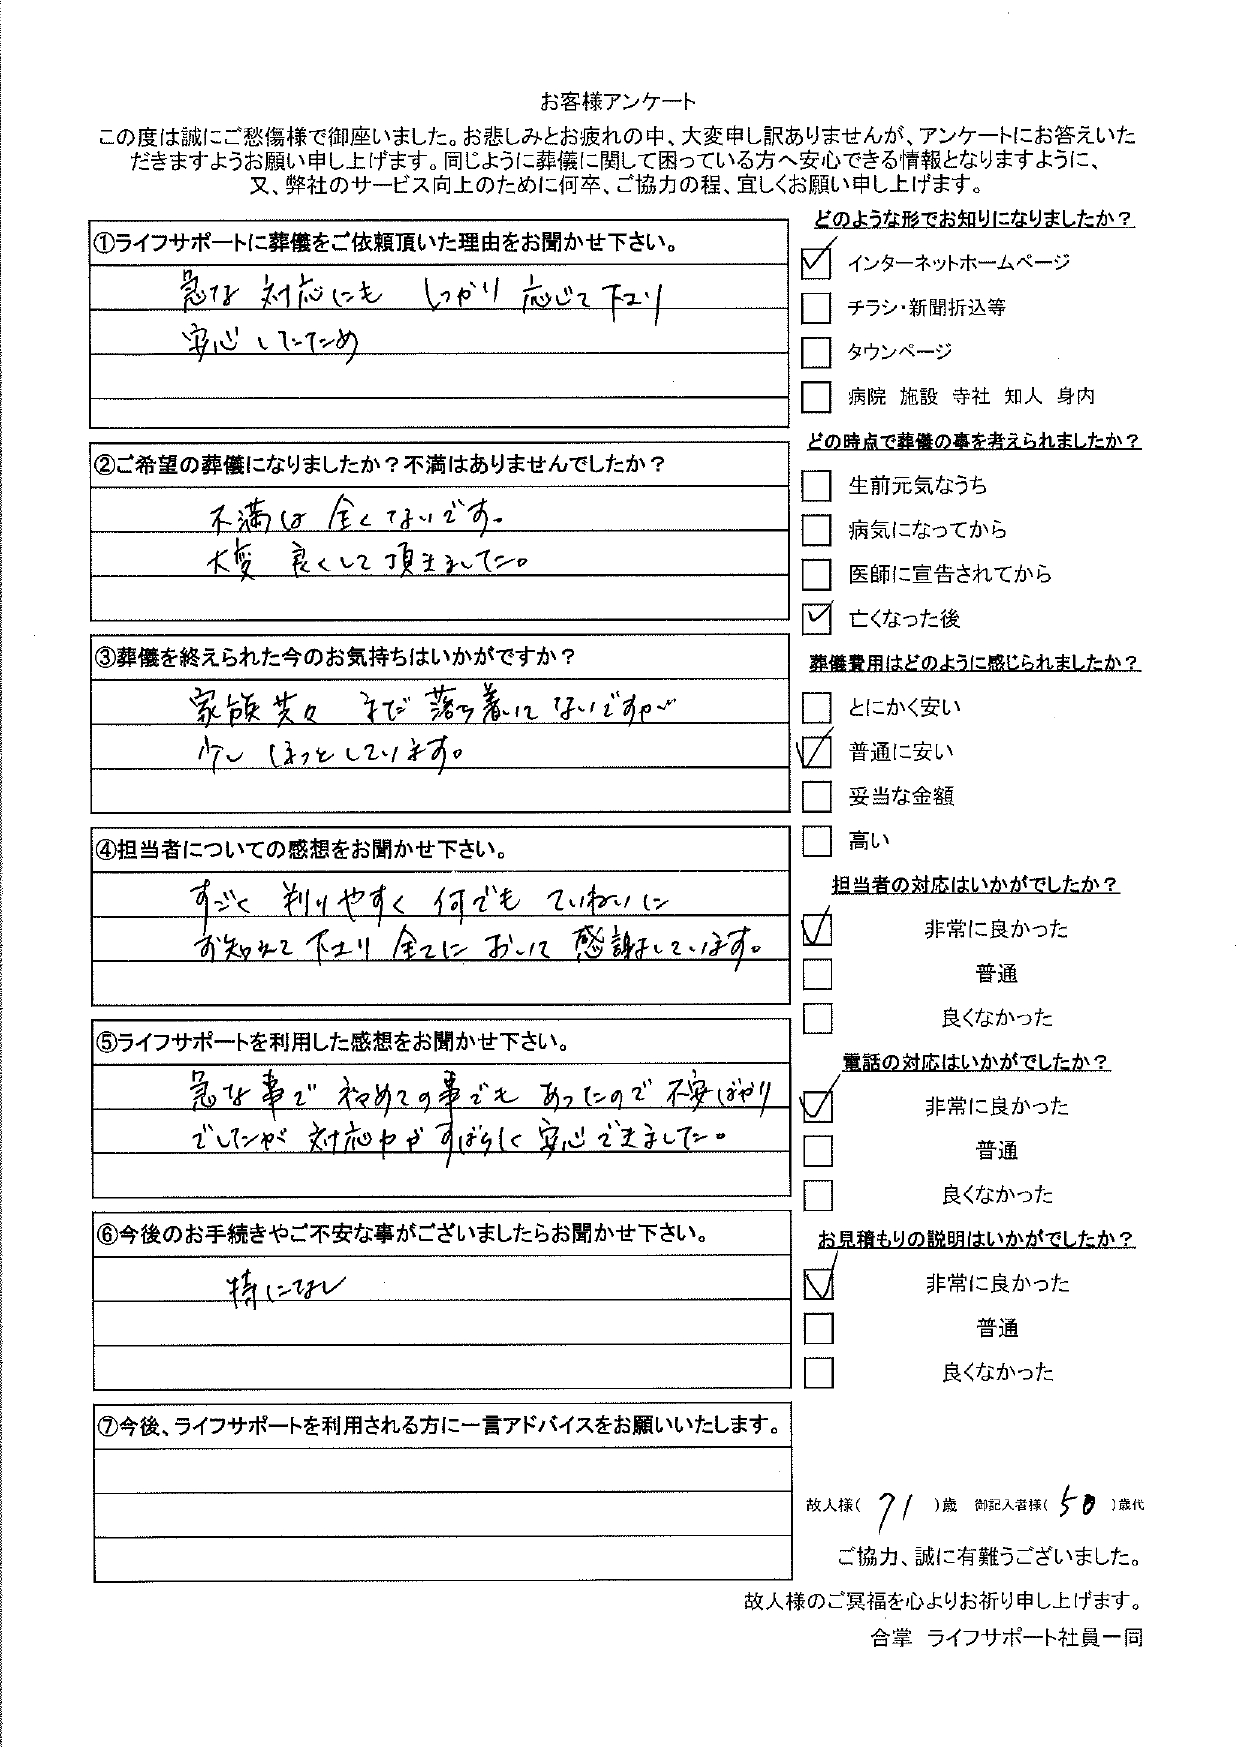 お客様アンケート
この度は誠にご愁傷様で御座いました。お悲しみとお疲れの中、大変申し訳ありませんが、アンケートにお答えいた
だきますようお願い申し上げます。同じように葬儀に関して困っている方へ安心できる情報となりますように、
又、弊社のサービス向上のために何卒、ご協力の程、宜しくお願い申し上げます。
①ライフサポートに葬儀をご依頼頂いた理由をお聞かせ下さい。
急な対応にも しっかり 応じて下さり
安心したため
②ご希望の葬儀になりましたか？不満はありませんでしたか？
不満は 全くないです。
大変 良くして頂きました。
③葬儀を終えられた今のお気持ちはいかがですか？
家族共々 まだ 落ち着いてないですが
少し ほっとしています。
④担当者についての感想をお聞かせ下さい。
すごく 判りやすく 何でも ていねいに
お知えて 下さり 全てに おいて 感謝しています。
⑤ライフサポートを利用した感想をお聞かせ下さい。
急な事で 初めての事でも あったので 不安ばかり
でしたが 対応力が すばらしく 安心できました。
⑥今後のお手続きやご不安な事がございましたらお聞かせ下さい。
特になし
⑦今後、ライフサポートを利用される方に一言アドバイスをお願いいたします。
どのような形でお知りになりましたか？
インターネットホームページ
チラシ・新聞折込等
タウンページ
病院 施設 寺社 知人 身内
どの時点で葬儀の事を考えられましたか？
生前元気なうち
病気になってから
医師に宣告されてから
亡くなった後
葬儀費用はどのように感じられましたか？
とにかく安い
普通に安い
妥当な金額
高い
担当者の対応はいかがでしたか？
非常に良かった
普通
良くなかった
電話の対応はいかがでしたか？
非常に良かった
普通
良くなかった
お見積もりの説明はいかがでしたか？
非常に良かった
普通
良くなかった
故人様( 71 )歳 御記入者様( 50 )歳代
ご協力、誠に有難うございました。
故人様のご冥福を心よりお祈り申し上げます。
合掌 ライフサポート社員一同